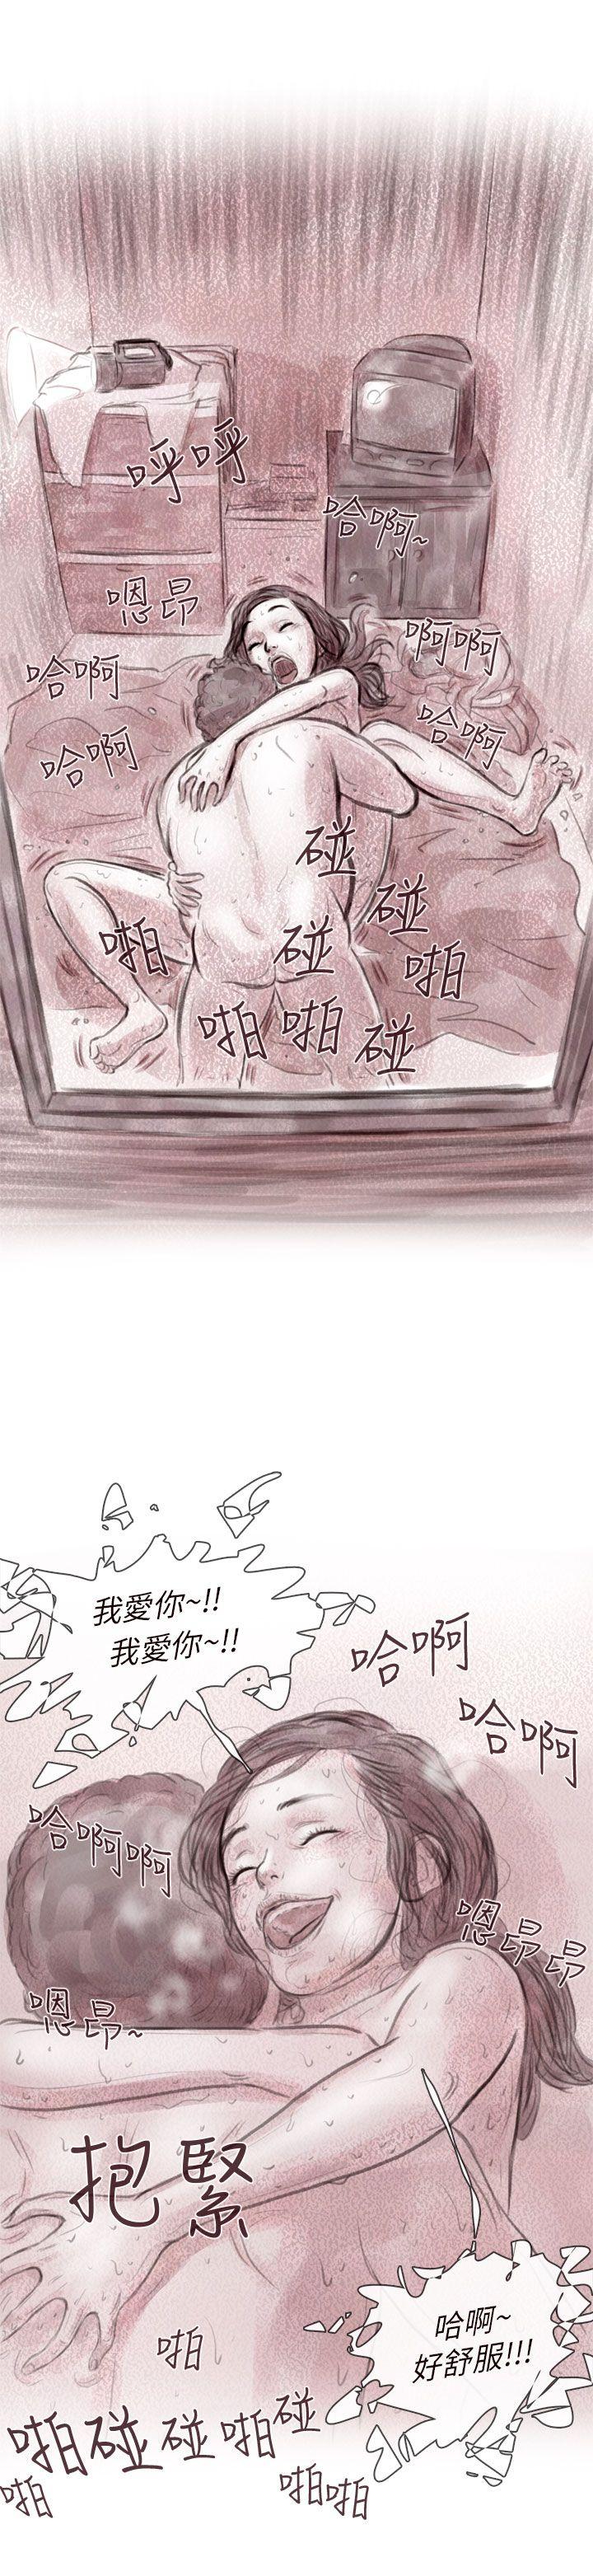 呼呼
哈啊~
嗯昂
啊啊
哈啊
哈啊
哈啊
碰
碰
啪
碰
啪
啪啪
碰
我愛你~!!
我愛你~!!
哈啊
哈啊
哈啊啊
嗯昂昂
嗯昂~
抱緊
哈啊~
好舒服!!!
啪
啪碰碰啪碰
啪
啪啪